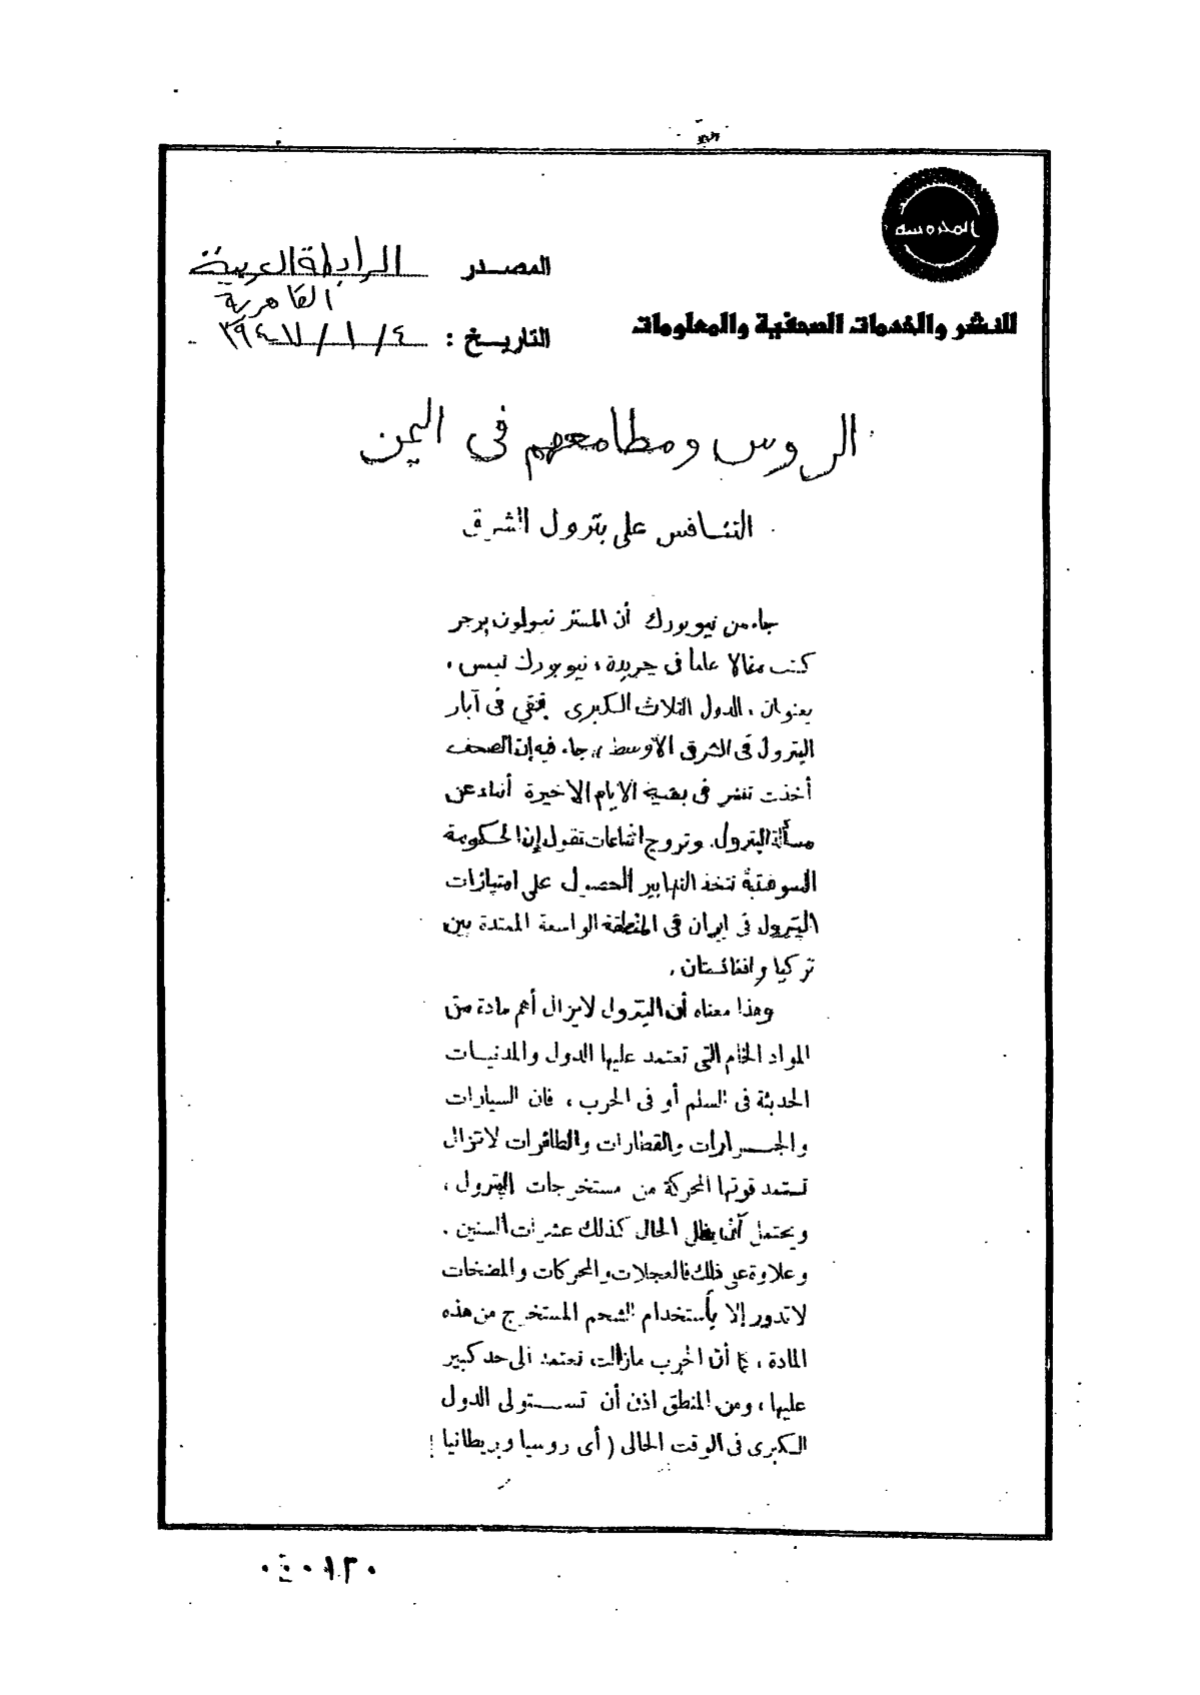 المحروسة
للنشر والخدمات الصحفية والمعلومات
المصدر الرابطة العربية
القاهرية
التاريخ : ٤/١/
الروس ومطامعهم في اليمن
التنافس على بترول الشرق
جاء من نيويورك أن المستر برجر
كتب مقالا عاما في جريدة « نيويورك تيمس »
بعنوان « الدول الثلاث الكبرى تلتقي في آبار
البترول في الشرق الأوسط » جاء فيه إن الصحف
أخذت تنشر في بقية الأيام الأخيرة أنباء عن
مسألة البترول. وتروج اشاعات تقول إن الحكومة
السوفيتية تتخذ التدابير للحصول على امتيازات
البترول في ايران في المنطقة الواسعة الممتدة بين
تركيا وافغانستان .
وهذا معناه أن البترول لايزال أهم مادة من
المواد الخام التي تعتمد عليها الدول والمدنيات
الحديثة في السلم أو في الحرب ، فان السيارات
والجرارات والقطارات والطائرات لاتزال
تستمد قوتها المحركة من مستخرجات البترول ،
ويحتمل أن يظل الحال كذلك عشرات السنين .
وعلاوة على ذلك فالعجلات والمحركات والمضخات
لاتدور إلا بأستخدام الشحم المستخرج من هذه
المادة ، كما أن الحرب مازالت تعتمد الى حد كبير
عليها ، ومن المنطق اذن أن تستولى الدول
الكبرى في الوقت الحالى ( أى روسيا وبريطانيا